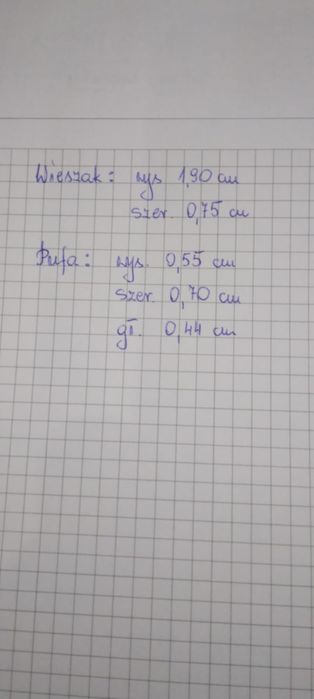 Wieszak: wys 1,90 cm
szer. 0,75 cm
Pufa: wys. 0,55 cm
szer. 0,70 cm
gł. 0,44 cm